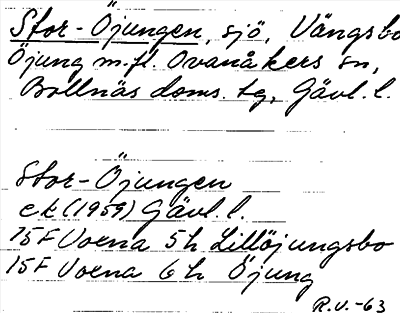 Stor-Öjungen, sjö, Vängsbo
Öjung m.fl. Ovanåkers sn,
Bollnäs doms. tg, Gävl. l.
Stor-Öjungen
ek (1959) Gävl. l.
15F Voxna 5h Lillöjungsbo
15F Voxna 6h Öjung
R.V.-63